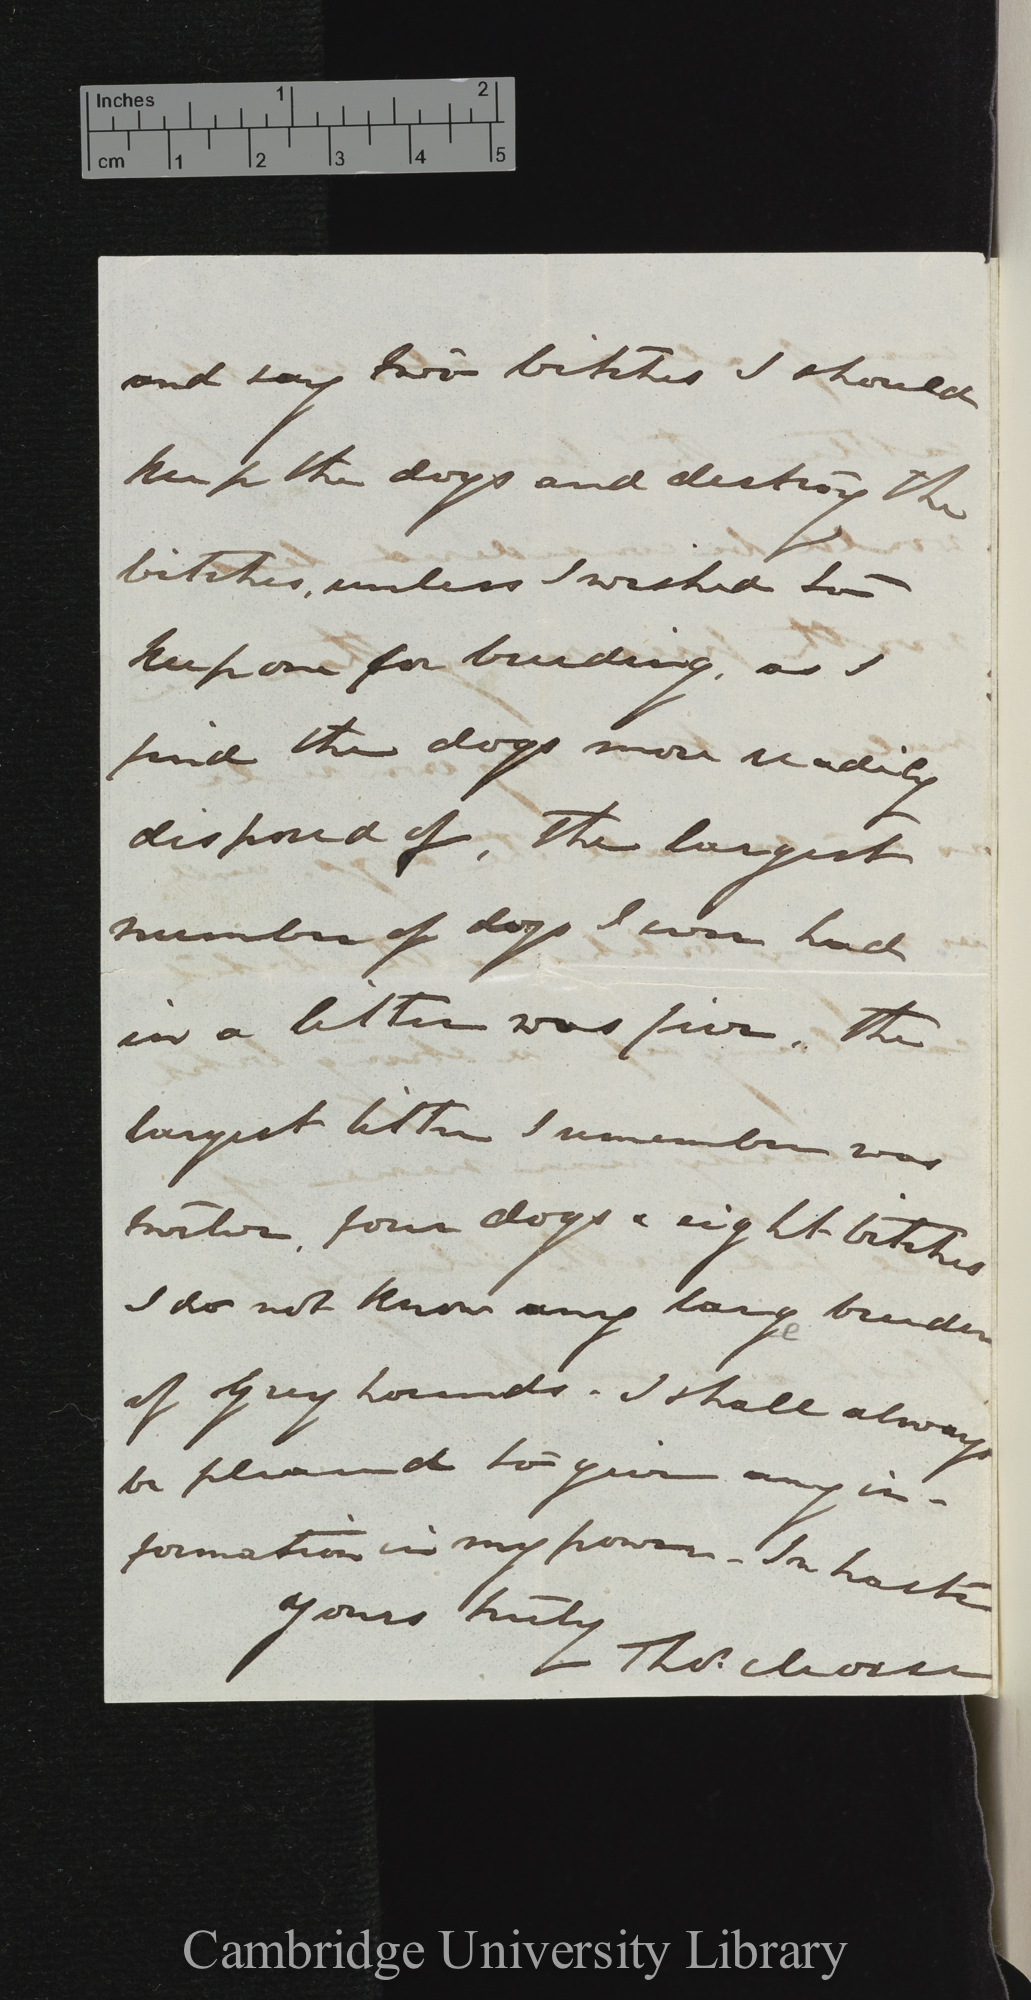 Inches 1 2
cm 1 2 3 4 5
and say two bitches I should
keep the dogs and destroy the
bitches, unless I wished to
keep one for breeding, as I
find the dogs more readily
disposed of, The largest
number of dogs I ever had
in a litter was five. The
largest litter I remember was
twelve, four dogs & eight bitches
I do not know any large breeder
of Greyhounds. I shall always
be pleased to give any in-
formation in my power - In haste
yours truly
Thos.
Cambridge University Library